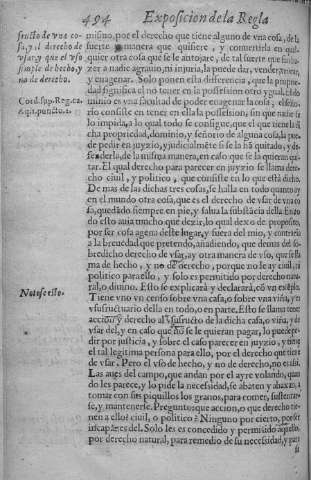 494 Exposicion de la Regla
fructo de vna co-
sa, y el derecho de
vsar, y que el vso
simple de hecho, y
no de derecho.
Cord. sup. Reg. ca.
Notese esto.
mismo, por el derecho que tiene alguno de vna cosa, de la
suerte manera que quisiere, y convertirla en qual-
quier otra cosa que se le antojare, de tal suerte que sin ha-
zer a nadie agrauio, ni injuria, la puede dar, vender, trocar,
y enagenar. Solo ponen esta diferencia, que la proprie-
dad significa el no tener en la possession otro ygual, el do-
minio es vna facultad de poder enagenar la cosa, el seño-
rio consiste en tener en ella la possession, sin que nadie se
lo impida, a lo qual todo se consigue, que el que tiene di-
cha propriedad, dominio, y señorio de alguna cosa, la pue-
de pedir en juyzio, y judicialmẽte si se la hã quitado, y
derla, de la misma manera, en caso que se la quieran qui-
tar. El qual derecho para parecer en juyzio se llama dere-
cho ciuil, y politico, que consiste en lo que està dicho.
De mas de las dichas tres cosas, se halla en todo quanto ay
en el mundo otra cosa, que es el derecho de vsar de vna co-
sa, quedãdo siempre en pie, y salua la substãcia della. En to-
do esto auia mucho que dezir, lo qual dexo de proposito,
por ser cosa agena deste lugar, y fuera del mio, y contrario
a la breuedad que pretendo, añadiendo, que demas del so-
bredicho derecho de vsar, ay otra manera de vso, que se lla-
ma de hecho, y no de derecho, porque no le ay ciuil, ni
politico para ello, y solo es permitido por derecho natu-
ral, o diuino. Esto se explicarà y declararà, cõ vn exemplo.
Tiene vno vn censo sobre vna casa, o sobre vna viña, y
vsufructuario della en todo, o en parte. Esto se llama tener
accion y derecho al vsufructo de la dicha casa, o viña, y de
vsar del, y en caso que no se le quieran pagar, lo puede pe-
dir por justicia, y sobre el caso parecer en juyzio, y tiene
el tal legitima persona para ello, por el derecho que tiene
de vsar. Pero el vso de hecho, y no de derecho, no es assi.
Las aues del campo, que andan por el ayre volando, quan-
do les parece, y lo pide la necessidad, se abaten y abaxan a
tomar con sus piquillos los granos, para comer, sustentar-
se, y mantenerse. Pregunto: que accion, o que derecho tie-
nen a ello? ciuil, o politico? Ninguno por cierto, por ser
incapazes del. Solo les es concedido y permitido aquello,
por derecho natural, para remedio de su necessidad, y para
si